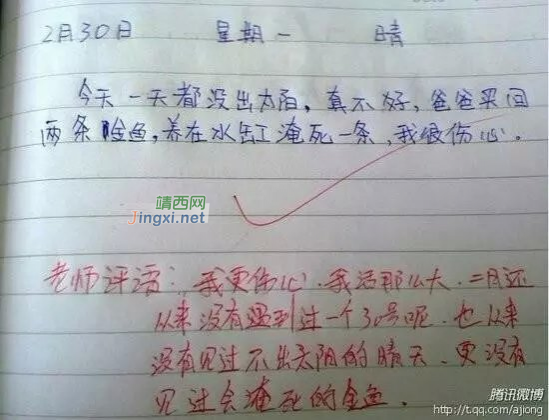 2月30日 星期一 晴
今天一天都没出太阳，真不好，爸爸买回
两条金鱼，养在水缸淹死一条，我很伤心。
靖西网
Jingxi.net
老师评语：我更伤心，我活那么大，二月还
从来没有遇到过一个30号呢，也从来
没有见过不出太阳的晴天，更没有
见过会淹死的金鱼．
腾讯微博
http://t.qq.com/ajiong1